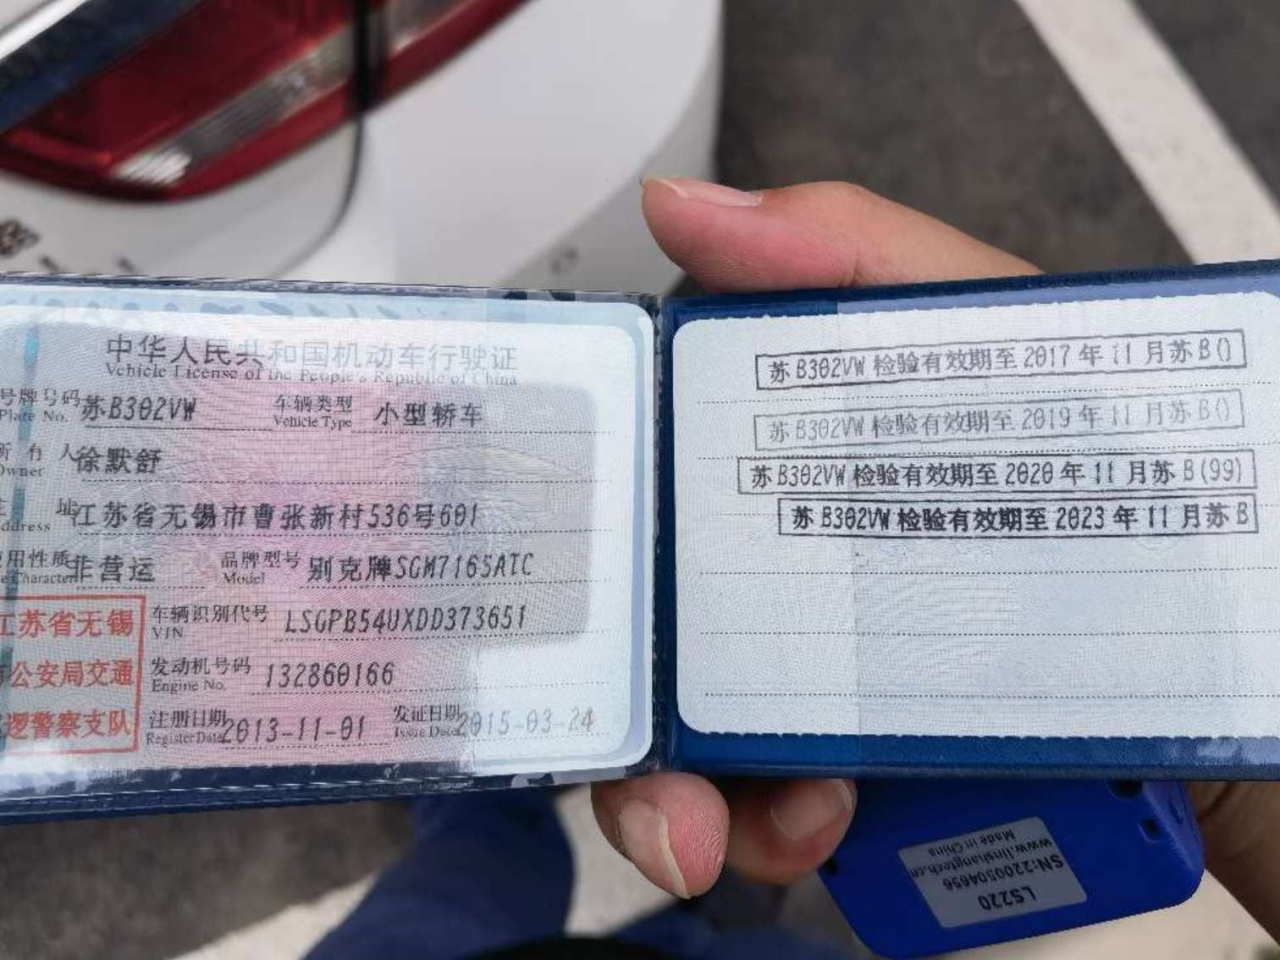 中华人民共和国机动车行驶证
Vehicle License of the People's Republic of China
号牌号码 苏B302VW 车辆类型 小型轿车
Plate No. Vehicle Type
所有人 徐默舒
Owner
址 江苏省无锡市曹张新村536号601
Address
使用性质 非营运 品牌型号 别克牌SGM7165ATC
Use Character Model
江苏省无锡
市公安局交通
巡逻警察支队
车辆识别代号 LSGPB54UXDD373651
VIN
发动机号码 132860166
Engine No.
注册日期 2013-11-01 发证日期 2015-03-24
Register Date Issue Date
苏B302VW 检验有效期至 2017 年 11 月苏B()
苏B302VW 检验有效期至 2019 年 11 月苏B()
苏B302VW 检验有效期至 2020 年 11 月苏B(99)
苏B302VW 检验有效期至 2023 年 11 月苏B
LS220
SN:2200504656
www.linshangtech.cn
Made in China